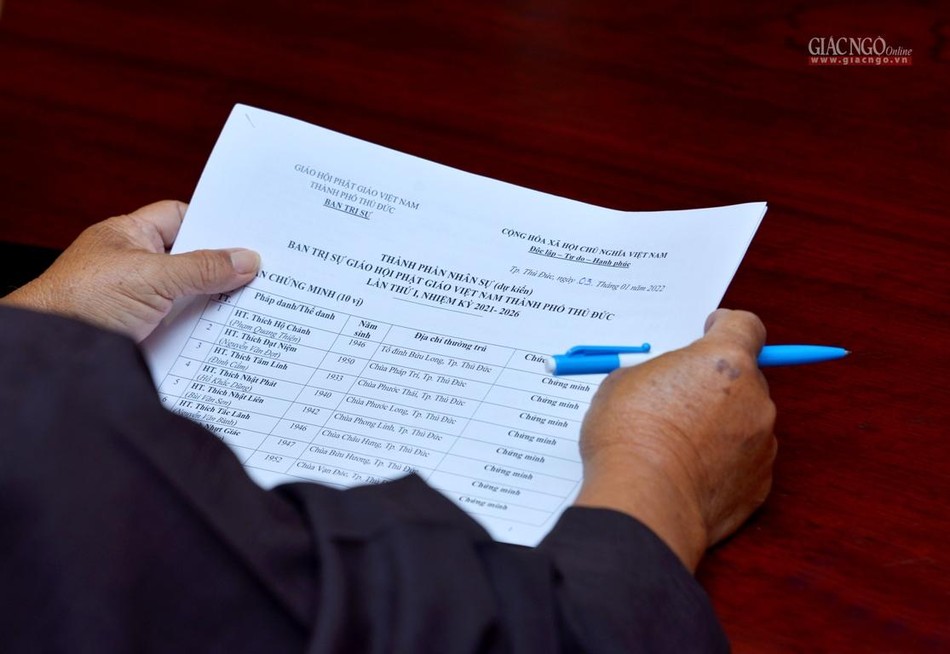 GIÁC NGỘ Online
www.giacngo.vn
GIÁO HỘI PHẬT GIÁO VIỆT NAM
THÀNH PHỐ THỦ ĐỨC
BAN TRỊ SỰ
CỘNG HÒA XÃ HỘI CHỦ NGHĨA VIỆT NAM
Độc lập – Tự do – Hạnh phúc
Tp. Thủ Đức, ngày 03 Tháng 01 năm 2022
THÀNH PHẦN NHÂN SỰ (dự kiến)
BAN TRỊ SỰ GIÁO HỘI PHẬT GIÁO VIỆT NAM THÀNH PHỐ THỦ ĐỨC
LẦN THỨ I, NHIỆM KỲ 2021- 2026
CHỨNG MINH (10 vị)
TT. Pháp danh/Thế danh Năm sinh Địa chỉ thường trú Chức
1 HT. Thích Hộ Chánh 1946 Tổ đình Bửu Long, Tp. Thủ Đức Chứng minh
(Phạm Quang Thiện)
2 HT. Thích Đạt Niệm 1950 Chùa Pháp Trí, Tp. Thủ Đức Chứng minh
(Nguyễn Văn Đợt)
3 HT. Thích Tâm Linh 1933 Chùa Phước Thái, Tp. Thủ Đức Chứng minh
(Đinh Cẩm)
4 HT. Thích Nhật Phát 1940 Chùa Phước Long, Tp. Thủ Đức Chứng minh
(Hồ Khắc Dũng)
5 HT. Thích Nhật Liên 1942 Chùa Phong Linh, Tp. Thủ Đức Chứng minh
(Bùi Văn Sen)
HT. Thích Tắc Lãnh 1946 Chùa Châu Hưng, Tp. Thủ Đức Chứng minh
(Nguyễn Văn Bảnh)
Nhựt Giác 1947 Chùa Bửu Hương, Tp. Thủ Đức Chứng minh
1952 Chùa Vạn Đức, Tp. Thủ